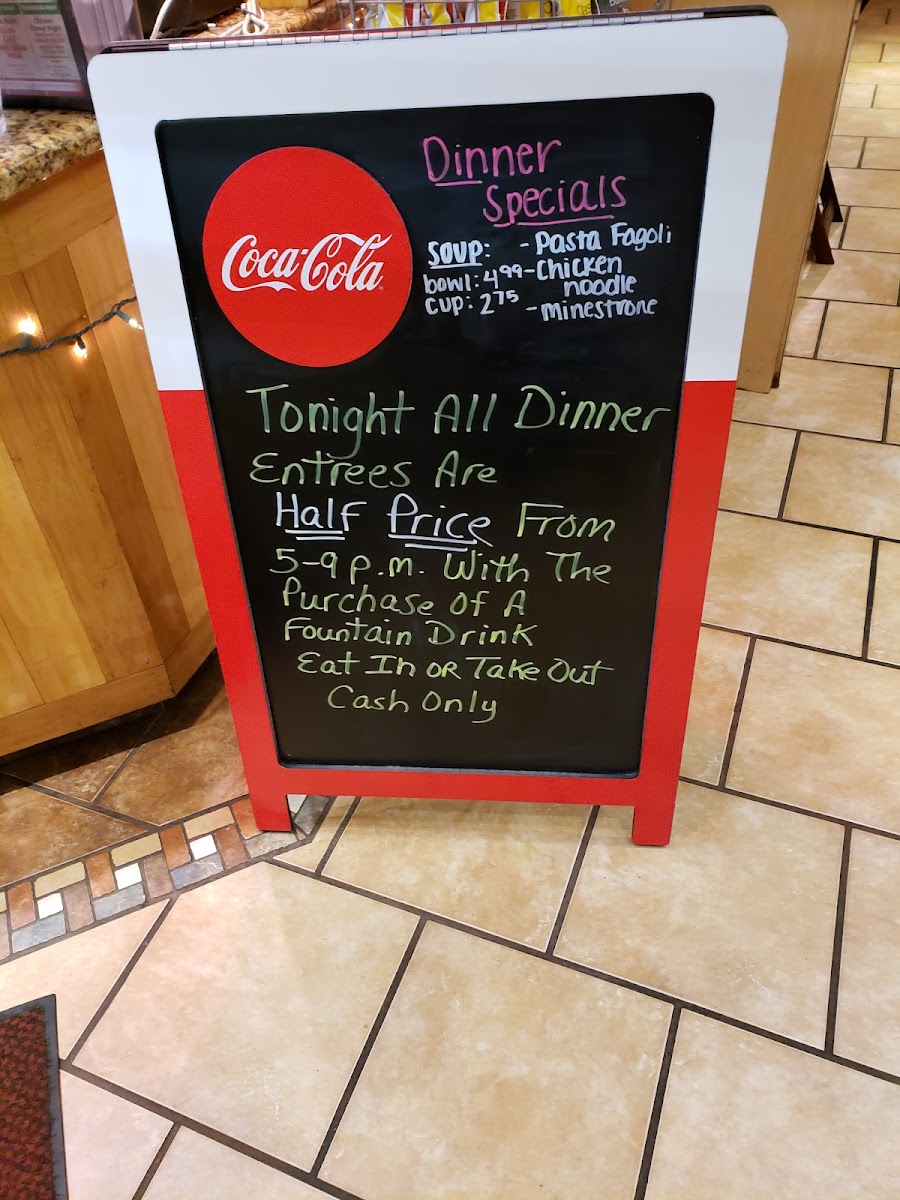 Coca-Cola
Dinner
Specials
Soup: - Pasta Fagoli
bowl: 4.99 - Chicken
noodle
cup: 2.75 - minestrone
Tonight All Dinner
Entrees Are
Half Price From
5-9 p.m. With The
Purchase Of A
Fountain Drink
Eat In or Take Out
Cash Only